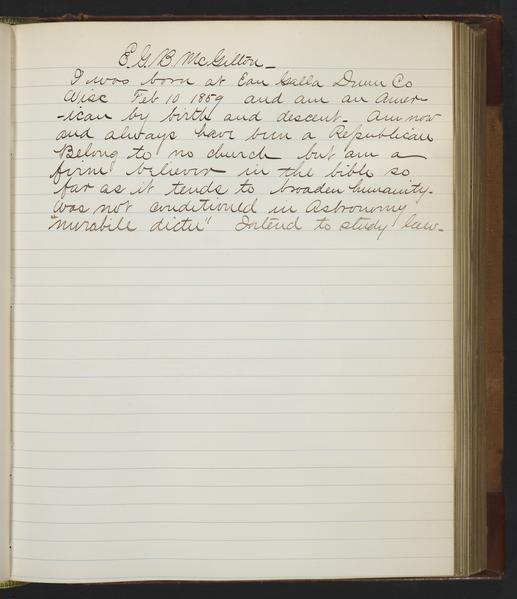 E.G.B. McGilton_
I was born at Eau Galla Dunn Co
Wisc Feb 10 1859 and am an Amer
-ican by birth and descent. Am now
and always have been a Republican
Belong to no church but am a
firm believer in the bible so
far as it tends to broaden humanity.
Was not conditioned in Astronomy
"mirabile dictu" Intend to study law.